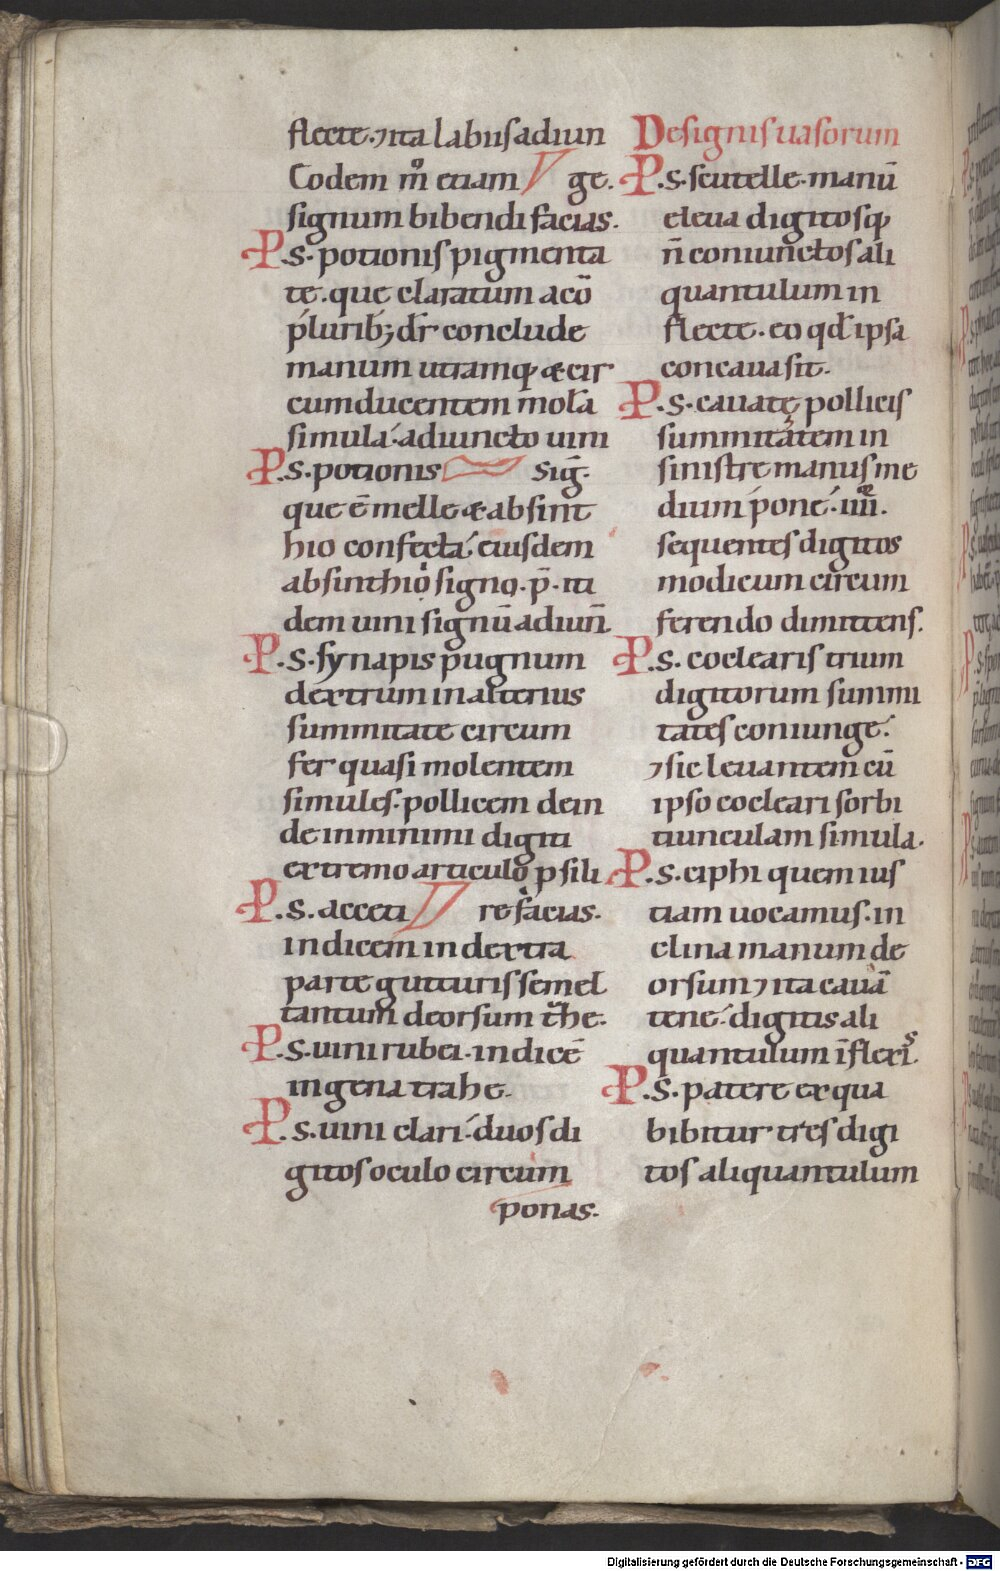 flecte. ⁊ ita labiis adiun
Eodem m̊ etiam ge.
signum bibendi facias.
P. S. potionis pigmenta
te. que claratum a cō
plurib; dr̄ conclude
manum utramq; & cir
cumducentem mola
simula. adiuncto uini
P. S. potionis sig̅.
que ē melle & absint
hio confecta. eiusdem
absinthio signo. p̄. iti
dem uini signū adiun̄.
P. S. synapis pugnum
dextrum in alterius
summitate circum
fer quasi molentem
simules. pollicem dein
de in minimi digiti
extremo articulo p sili
P. S. aceti re facias.
indicem in dextra
parte gutturis semel
tantum deorsum t͛he.
P. S. uini rubei. indicē
in gena trahe.
P. S. uini clari. duos di
gitos oculo circum
ponas.
De signis uasorum
P. S. scutelle. manū
eleua digitosq;
n̄ coniunctos ali
quantulum in
flecte. eo qd̄ ipsa
concaua sit.
P. S. cauatę pollicis
summitatem in
sinistre manus me
dium pone. iiii.
sequentes digitos
modicum circum
ferendo dimittens.
P. S. coclearis trium
digitorum summi
tates coniunge.
⁊ sic leuantem cū
ipso cocleari sorbi
tiunculam simula.
P. S. ciphi quem ius
tiam uocamus. in
clina manum de
orsum ⁊ ita cauā
tene. digitis ali
quantulum īflexi.s
P. S. patere ex qua
bibitur tres digi
tos aliquantulum
Digitalisierung gefördert durch die Deutsche Forschungsgemeinschaft - DFG